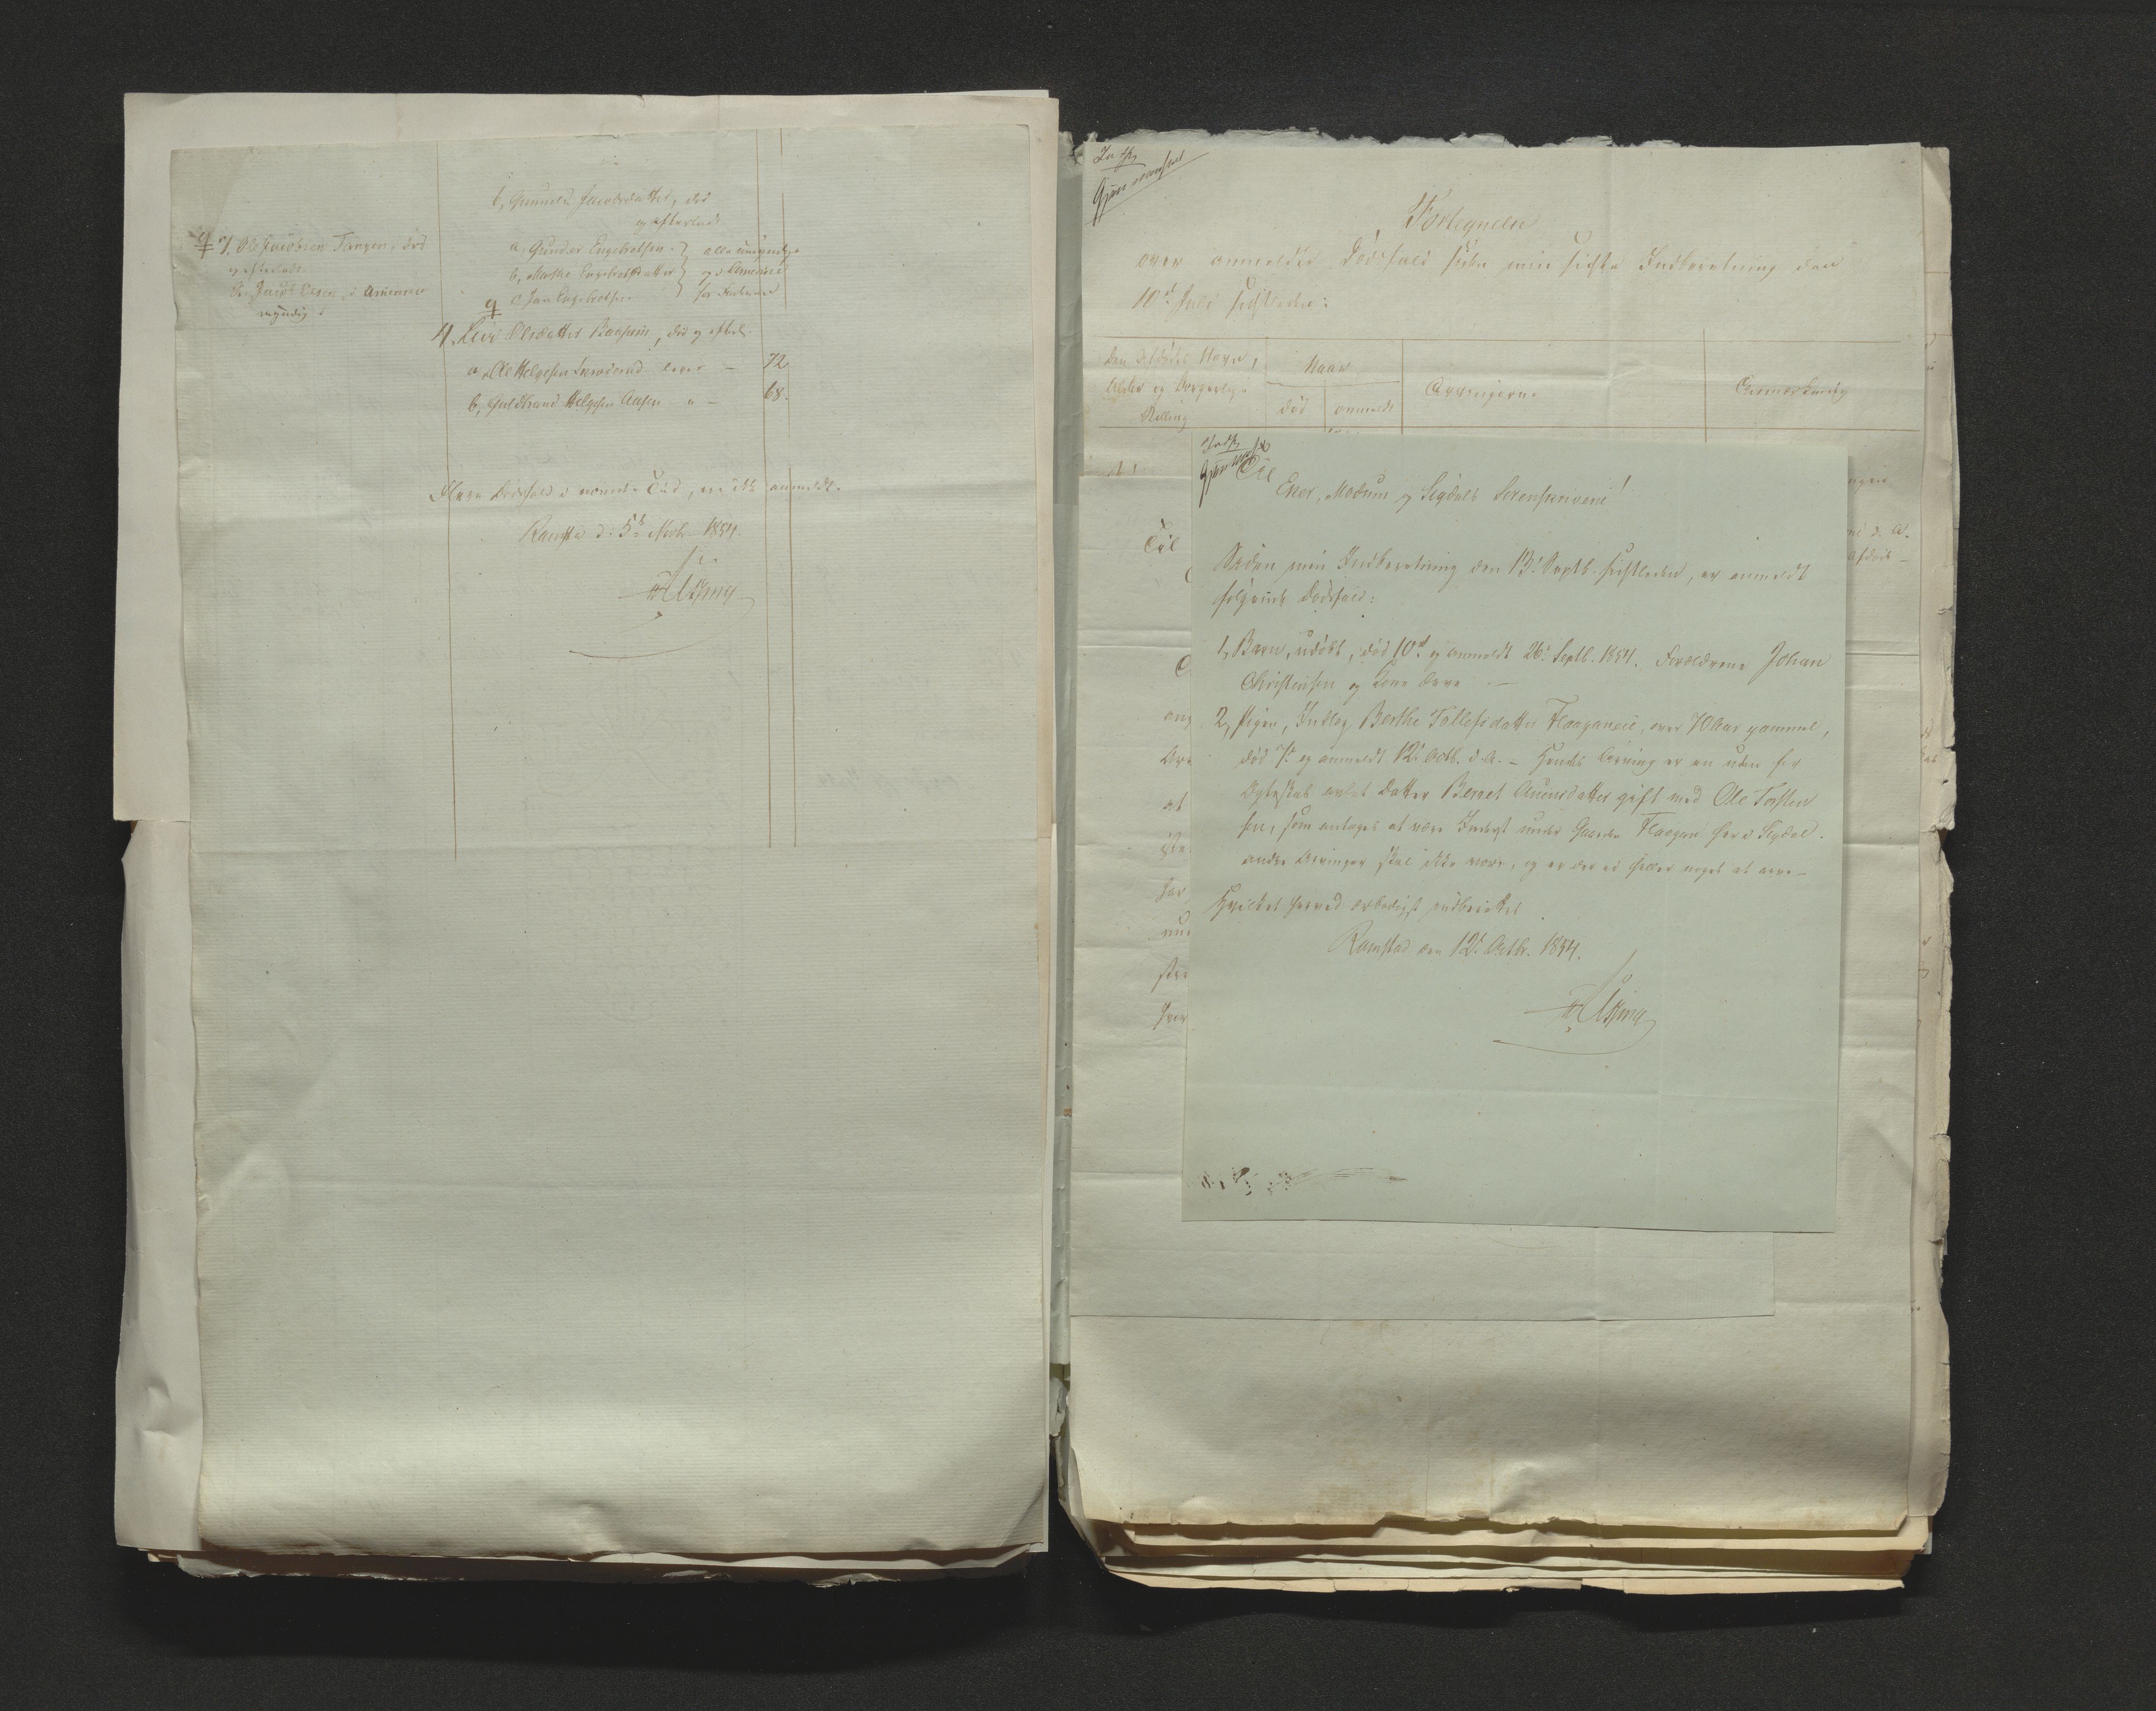 b, Gunnild Jacobsdatter, død
og efterladt
a, Gunder Engebretsen
b, Marthe Engebretsdatter
c, Jan Engebretsen
alle umyndige
og i America
7, Ole Jacobsen Tangen, død
og efterladt
Jacob Olsen, i America
myndig
4, Live Olsdatter, død og efterl.
a, Ole Helgesen lever — 72
b, Guldbrand Helgesen Aasen " — 68.
Flere Dødsfald i nævnte Tid, er ikke anmeldt.
Ramstad d: 5te Novbr. 1854.
Fortegnelse
over anmeldte Dødsfald siden min sidste Indberetning den
10de Juli sidstleden:
Den Afdødes Navn,
Alder og borgerlige
Stilling
Naar
død
anmeldt
Arvingerne
Anmærkning
Til
Eker, Modum og Sigdals Sorenskriveri!
Siden min Indberetning den 13de Septb. sidstleden, er anmeldt
følgende Dødsfald:
1, Barn, udøbt, død 10de og anmeldt 26de Septb. 1854. Forældrene Johan
Christensen og Kone
2, Pigen, Inderst Berthe Tollefsdatter Flaaganeie, over 70 Aar gammel,
død 7de og anmeldt 12te Octb. d. A. — Hendes Arving er en uden for
Ægteskab avlet Datter Berget gift med Ole Torsten
sen, som antages at være Inderst under Gaarden Flaagan her i Sigdal.
andre Arvinger skal ikke være, og er der ei heller noget at arve —
Hvilket herved ærbødigst indberettes
Ramstad den 12te Octbr. 1854.